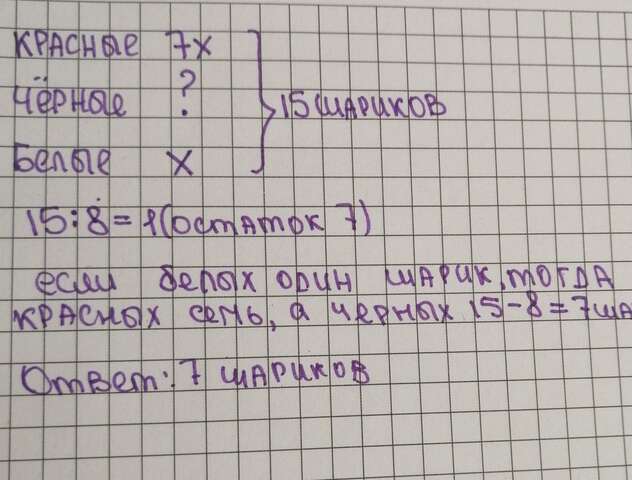 Красные 7х
Чёрные ?
Белые х
15 шариков
15:8=1(остаток 7)
если белых один шарик, тогда
красных семь, а черных 15-8=7ша
Ответ: 7 шариков